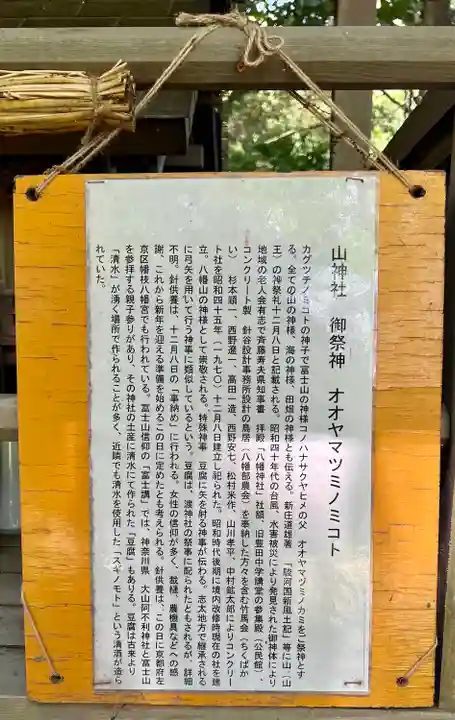 山神社　御祭神　オオヤマツミノミコト
カグツチノミコトの神子で富士山の神様コノハナサクヤヒメの父　オオヤマヅミノカミをご祭神とす
る。全ての山の神様、海の神様、田畑の神様とも伝える。新庄道雄著　「駿河国新風土記」等に山（山
王）の神祭礼十二月八日と記載される。昭和四十年代の台風、水害被災により発見された御神体により
地域の老人会有志で斉藤寿夫県知事書　拝殿「八幡神社」社額、旧豊田中学講堂の参集殿（公民館）、
コンクリート製　針谷設計事務所設計の鳥居（八幡部農会）を奉納した方々を含む竹馬会（ちくばか
い）　杉本順一、西野遼一、高田一造、西野安七、松村米作、山川孝平、中村鉱太郎によりコンクリー
ト社を昭和四十五年（一九七〇）十二月八日建立し祀られた。昭和時代後期に境内改修時現在の社を建
立。八幡山の神様として崇敬される。特殊神事　豆腐に矢を射る神事が伝わる。志太地方で継承される
に弓矢を用いて行う神事に類似しているという。豆腐は、渡神社の祭事に配られたともされるが、詳細
不明。針供養は、十二月八日の「事納め」に行われる。女性の信仰が多く、裁縫、農機具などへの感
謝、これから新年を迎える準備を始めるこの日に定めたとも考えられる。針供養は、この日に京都府左
京区幡枝八幡宮でも行われている。富士山信仰の「富士講」では、神奈川県　大山阿不利神社と富士山
を参拝する親子参りがあり、その神社の土産に清水にて作られた「豆腐」もありる。豆腐は古来より
「清水」が湧く場所で作られることが多く、近隣でも清水を使用した「スギノモト」という清酒が造ら
れていた。